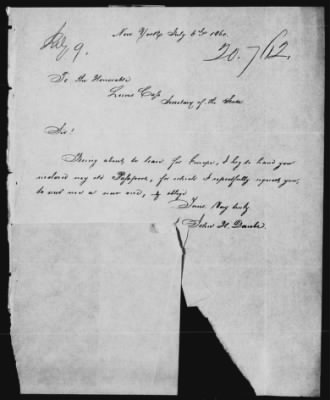 New York July 6th 1860.
July 9.
20.712
To the Honorable
Lewis Cass
Secretary of the State
Sir!
Being about to leave for Europe, I beg to hand you
inclosed my old Passport, for which I respectfully request you,
to send me a new one, & oblige
Yours Very truly
John H.